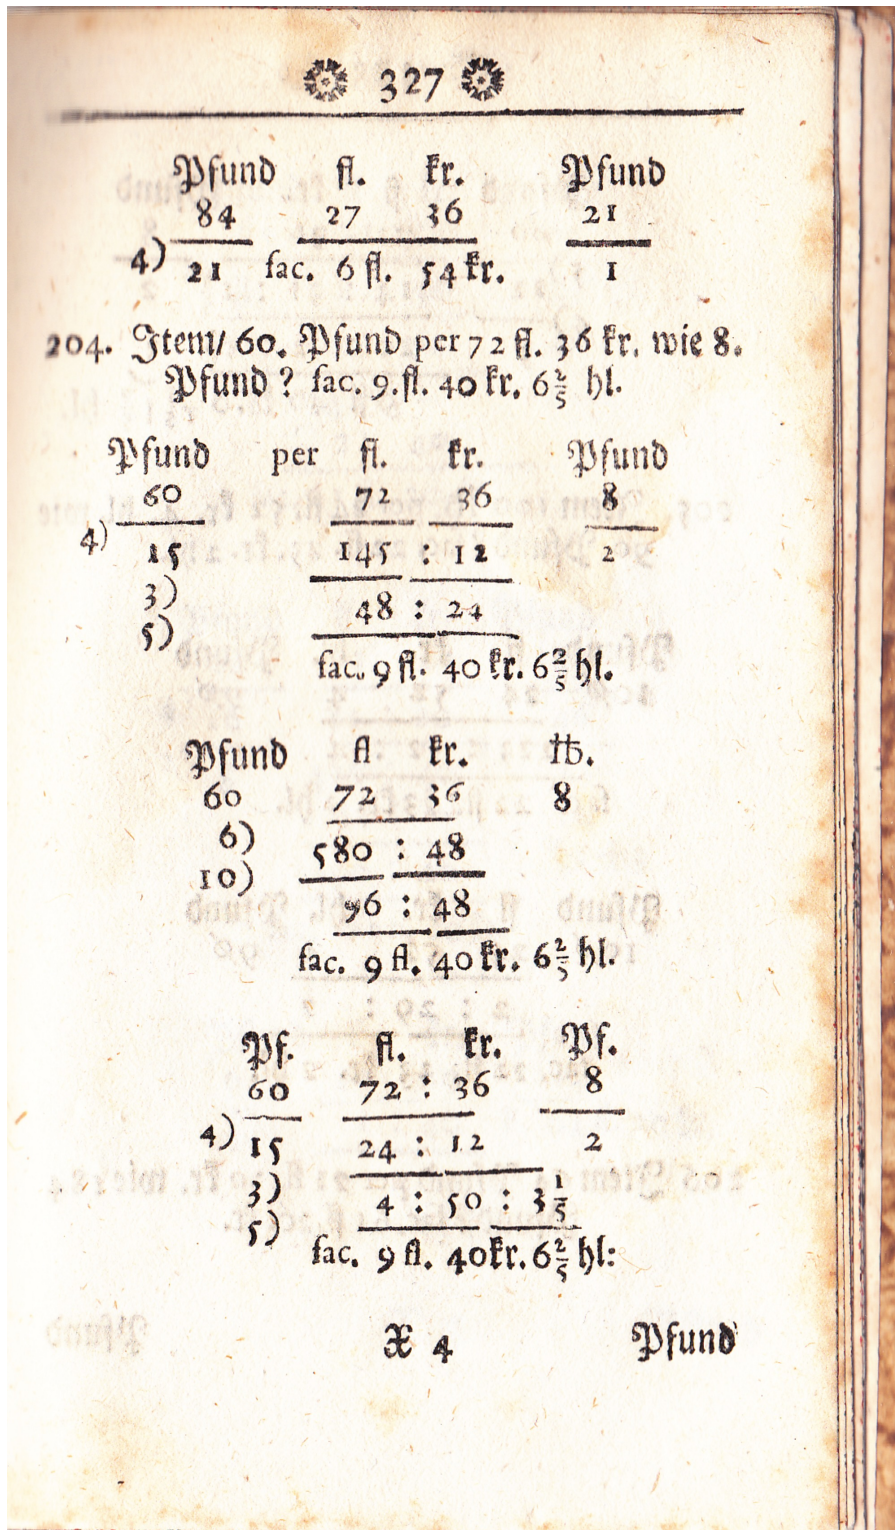 327
Pfund fl. kr. Pfund
84 27 36 21
4) 21 fac. 6 fl. 54 kr. 1
204. Item/ 60. Pfund per 72 fl. 36 kr. wie 8.
Pfund ? fac. 9. fl. 40 kr. 6 2/5 hl.
Pfund per fl. kr. Pfund
60 72 36 8
4) 15 145 : 12 2
3) 48 : 24
5)
fac. 9 fl. 40 kr. 6 2/5 hl.
Pfund fl kr. ℔.
60 72 36 8
6) 580 : 48
10)
96 : 48
fac. 9 fl. 40 kr. 6 2/5 hl.
Pf. fl. kr. Pf.
60 72 : 36 8
4) 15 24 : 12 2
3) 4 : 50 : 3 1/5
5)
fac. 9 fl. 40 kr. 6 2/5 hl:
X 4 Pfund